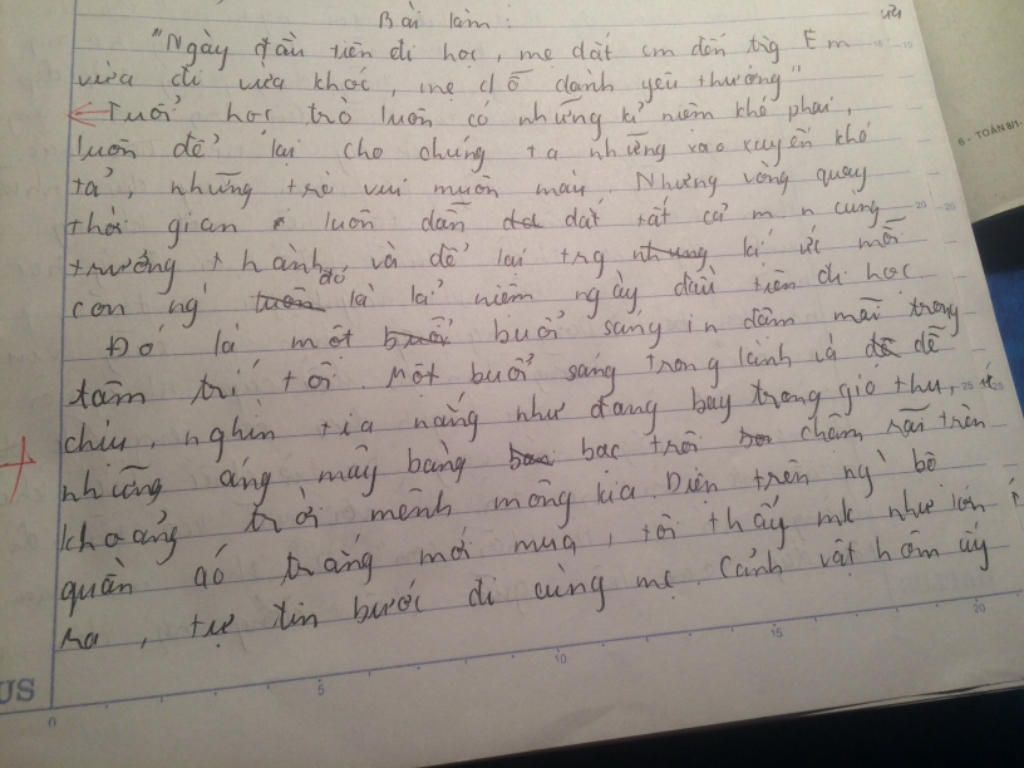 Bài làm:
"Ngày đầu tiên đi học, mẹ dắt em đến trg Em
vừa đi vừa khóc, mẹ dỗ dành yêu thương"
Tuổi học trò luôn có những kỉ niệm khó phai,
luôn để lại cho chúng ta những xao xuyến khó
tả, những trò vui muôn màu. Nhưng vòng quay
thời gian luôn dần dắt tất cả m.n cùng
trưởng thành, và để lại trg kí ức mỗi
con ng' đó là kỉ niệm ngày đầu tiên đi học
Đó là một buổi sáng in đậm mãi trong
tâm trí tôi. Một buổi sáng trong lành và dễ
chịu, nghìn tia nắng như đang bay trong gió thu,
những áng mây bàng bạc trôi chậm rãi trên
khoảng trời mênh mông kia. Diện trên ng` bộ
quần áo trắng mới mua, tôi thấy mk như lớn
ra, tự tin bước đi cùng mẹ. Cảnh vật hôm ấy
6 - TOÁN 8/1
US
0 5 10 15 20